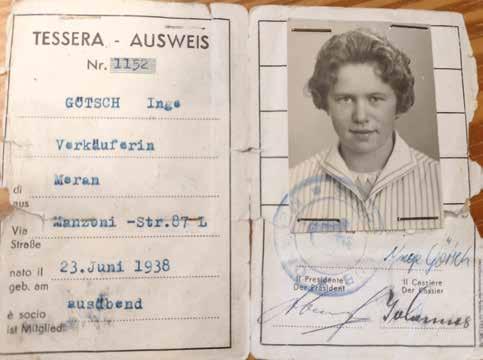 TESSERA - AUSWEIS
Nr. 1152
GÖTSCH Inge
Verkäuferin
Meran
di
aus
Manzoni -Str.87 L
Via
Straße
nato il
geb. am
23.Juni 1938
ausübend
è socio
ist Mitglied
Inge Götsch
Il Presidente
Der Präsident
Il Cassiere
Der Kassier
Johannes